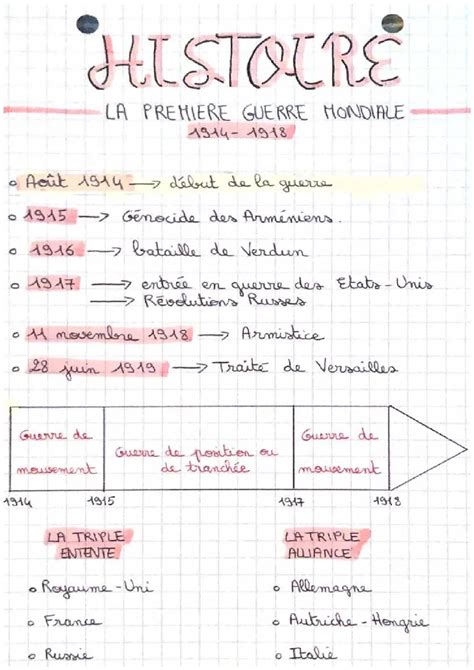 HISTOIRE
LA PREMIERE GUERRE MONDIALE
1914-1918
Août 1914 → début de la guerre
1915 → Génocide des Arméniens.
1916 → bataille de Verdun
1917 → entrée en guerre des Etats-Unis
→ Révolutions Russes
11 novembre 1918 → Armistice
28 juin 1919 → Traité de Versailles
Guerre de mouvement
Guerre de position ou de tranchée
Guerre de mouvement
1914 1915 1917 1918
LA TRIPLE ENTENTE
Royaume-Uni
France
Russie
LA TRIPLE ALLIANCE
Allemagne
Autriche-Hongrie
Italie